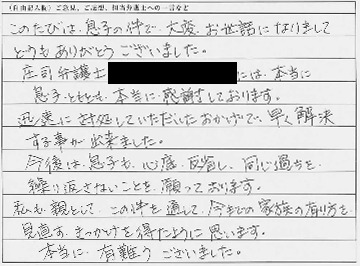 (自由記入欄) ご意見、ご感想、担当弁護士への一言など
このたびは、息子の件で、大変お世話になりまして
どうもありがとうございました。
庄司弁護士 には、本当に
息子ともども、本当に感謝しております。
迅速に対処していただいたおかげで、早く解決
する事が出来ました。
今後は息子も、心底、反省し、同じ過ちを
繰り返さないことを願っております。
私も親として、この件を通して、今までの家族の有り方を
見直す、きっかけを得たように思います。
本当に、有難うございました。